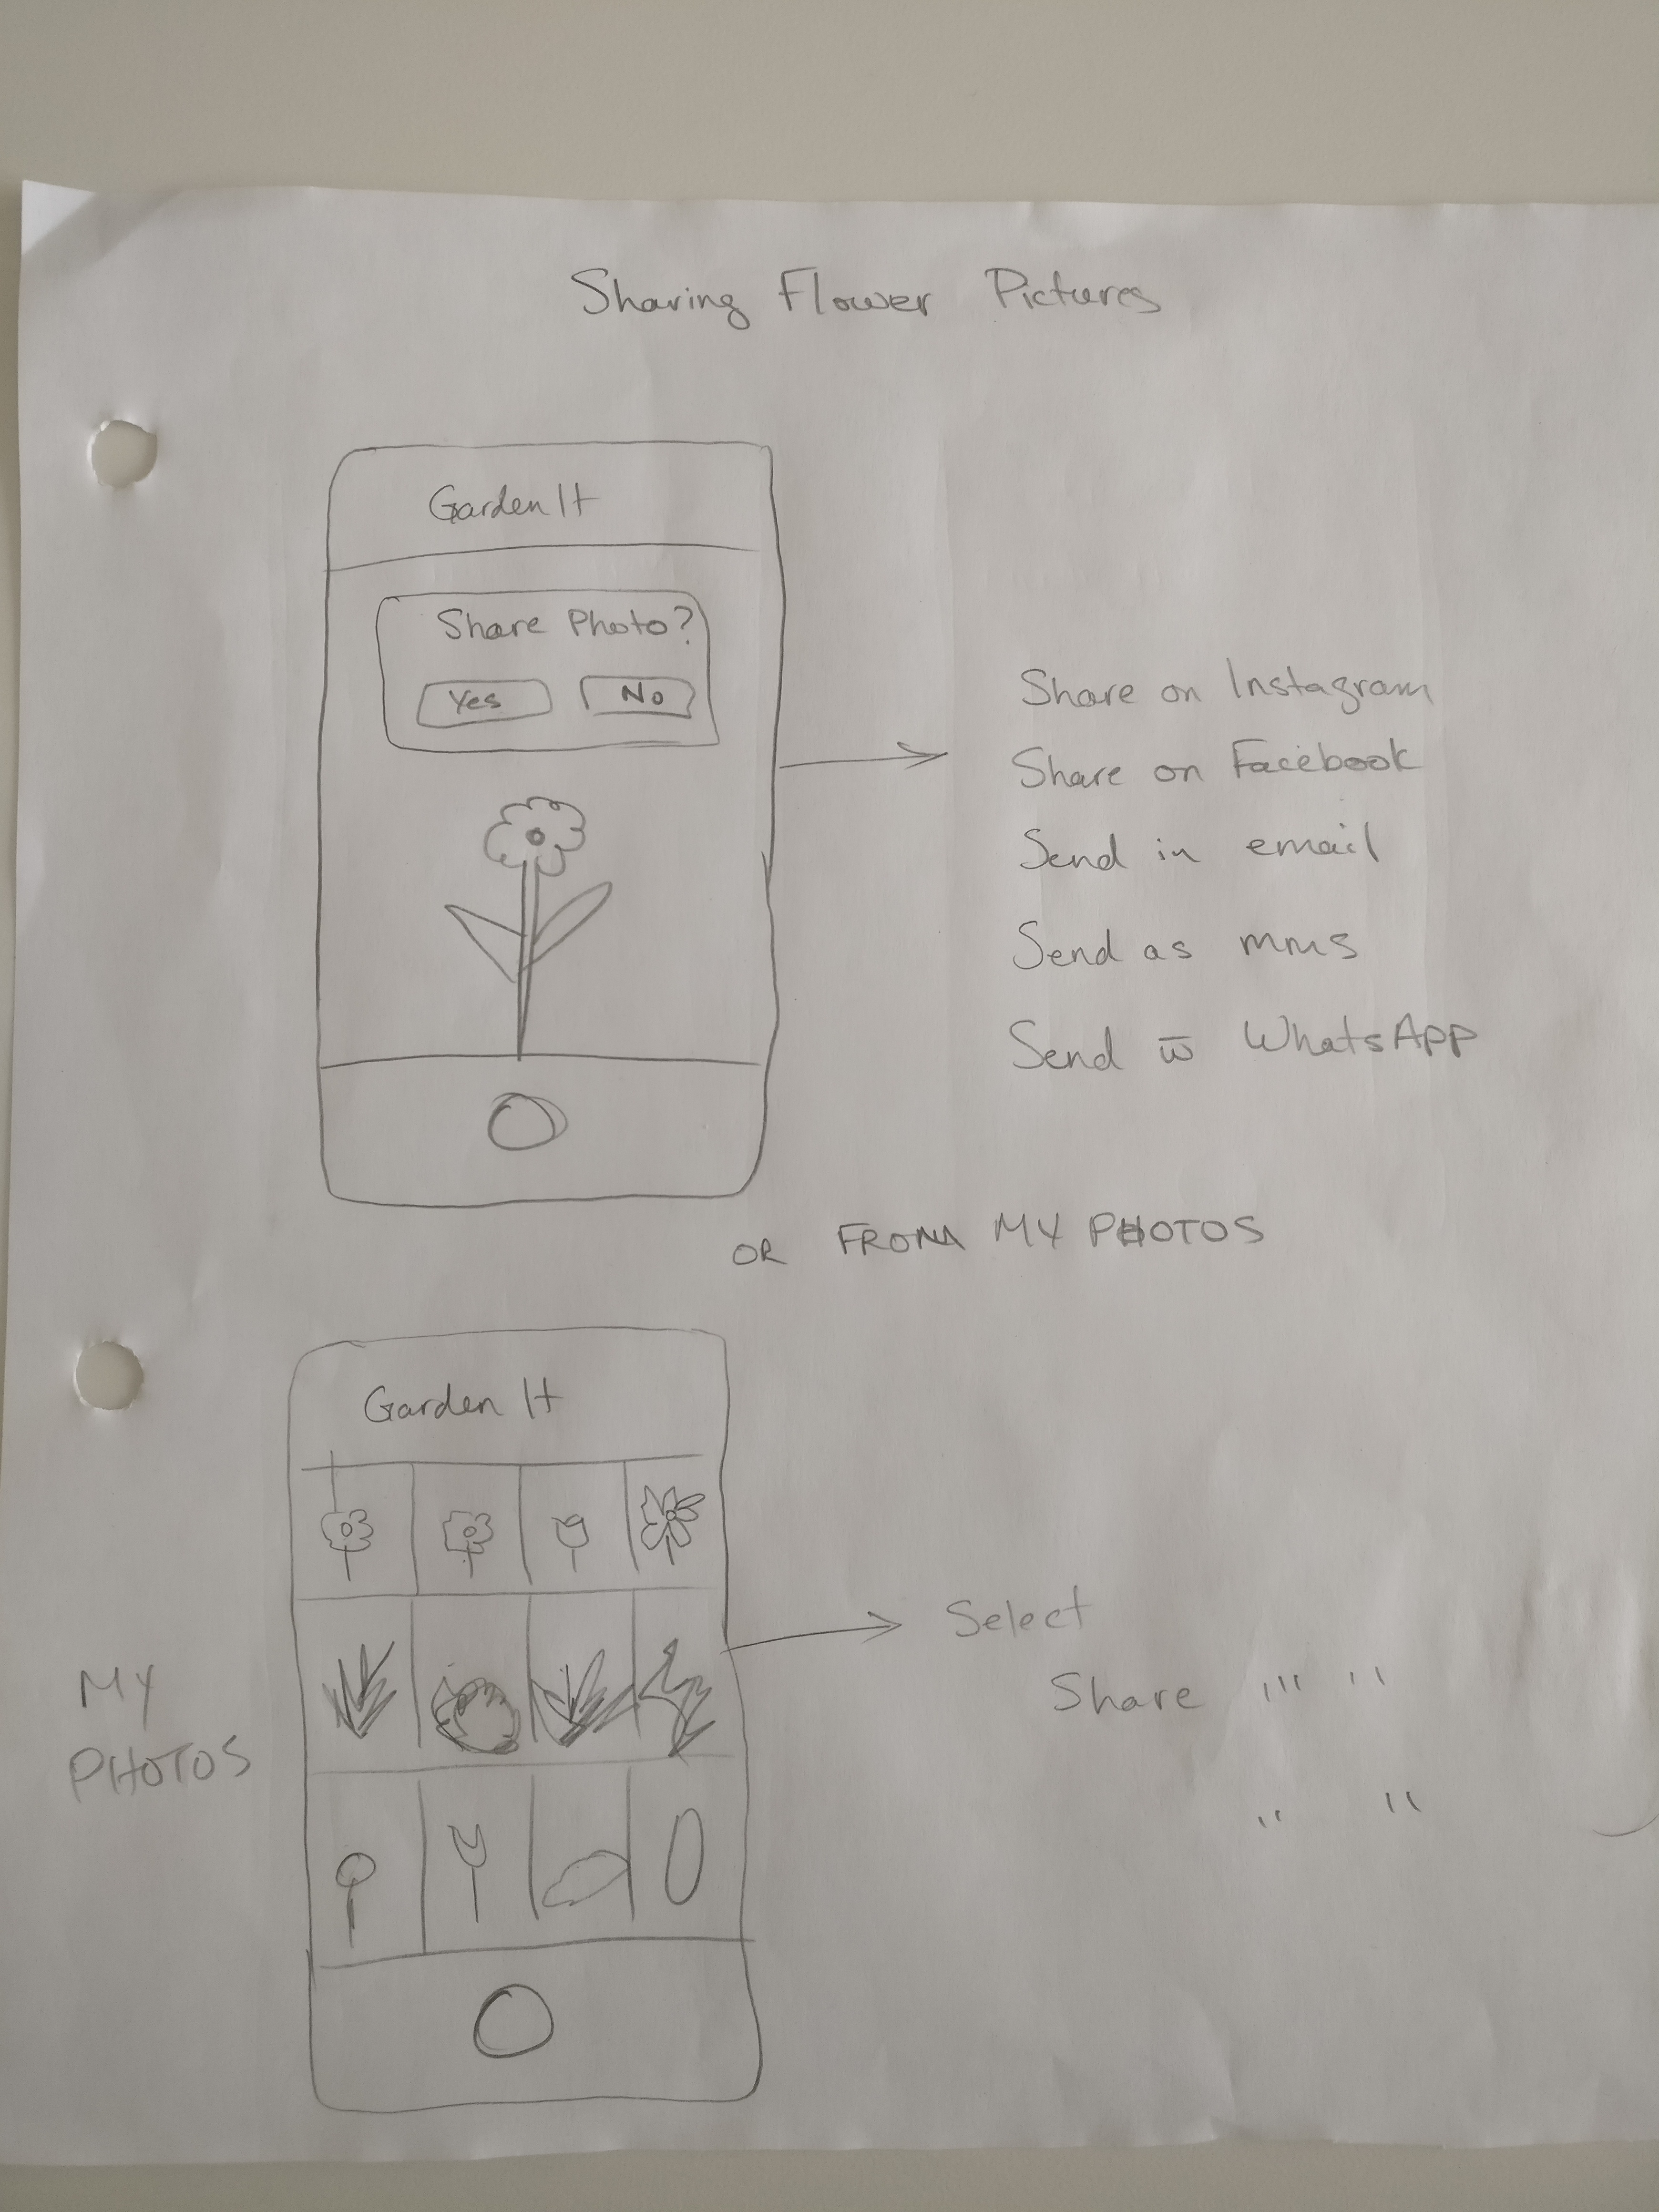 Sharing Flower Pictures
Garden It
Share Photo?
Yes
No
Share on Instagram
Share on Facebook
Send in email
Send as mms
Send w̅ WhatsApp
OR FROM MY PHOTOS
Garden It
MY
PHOTOS
Select
Share ''' ''
'' ''